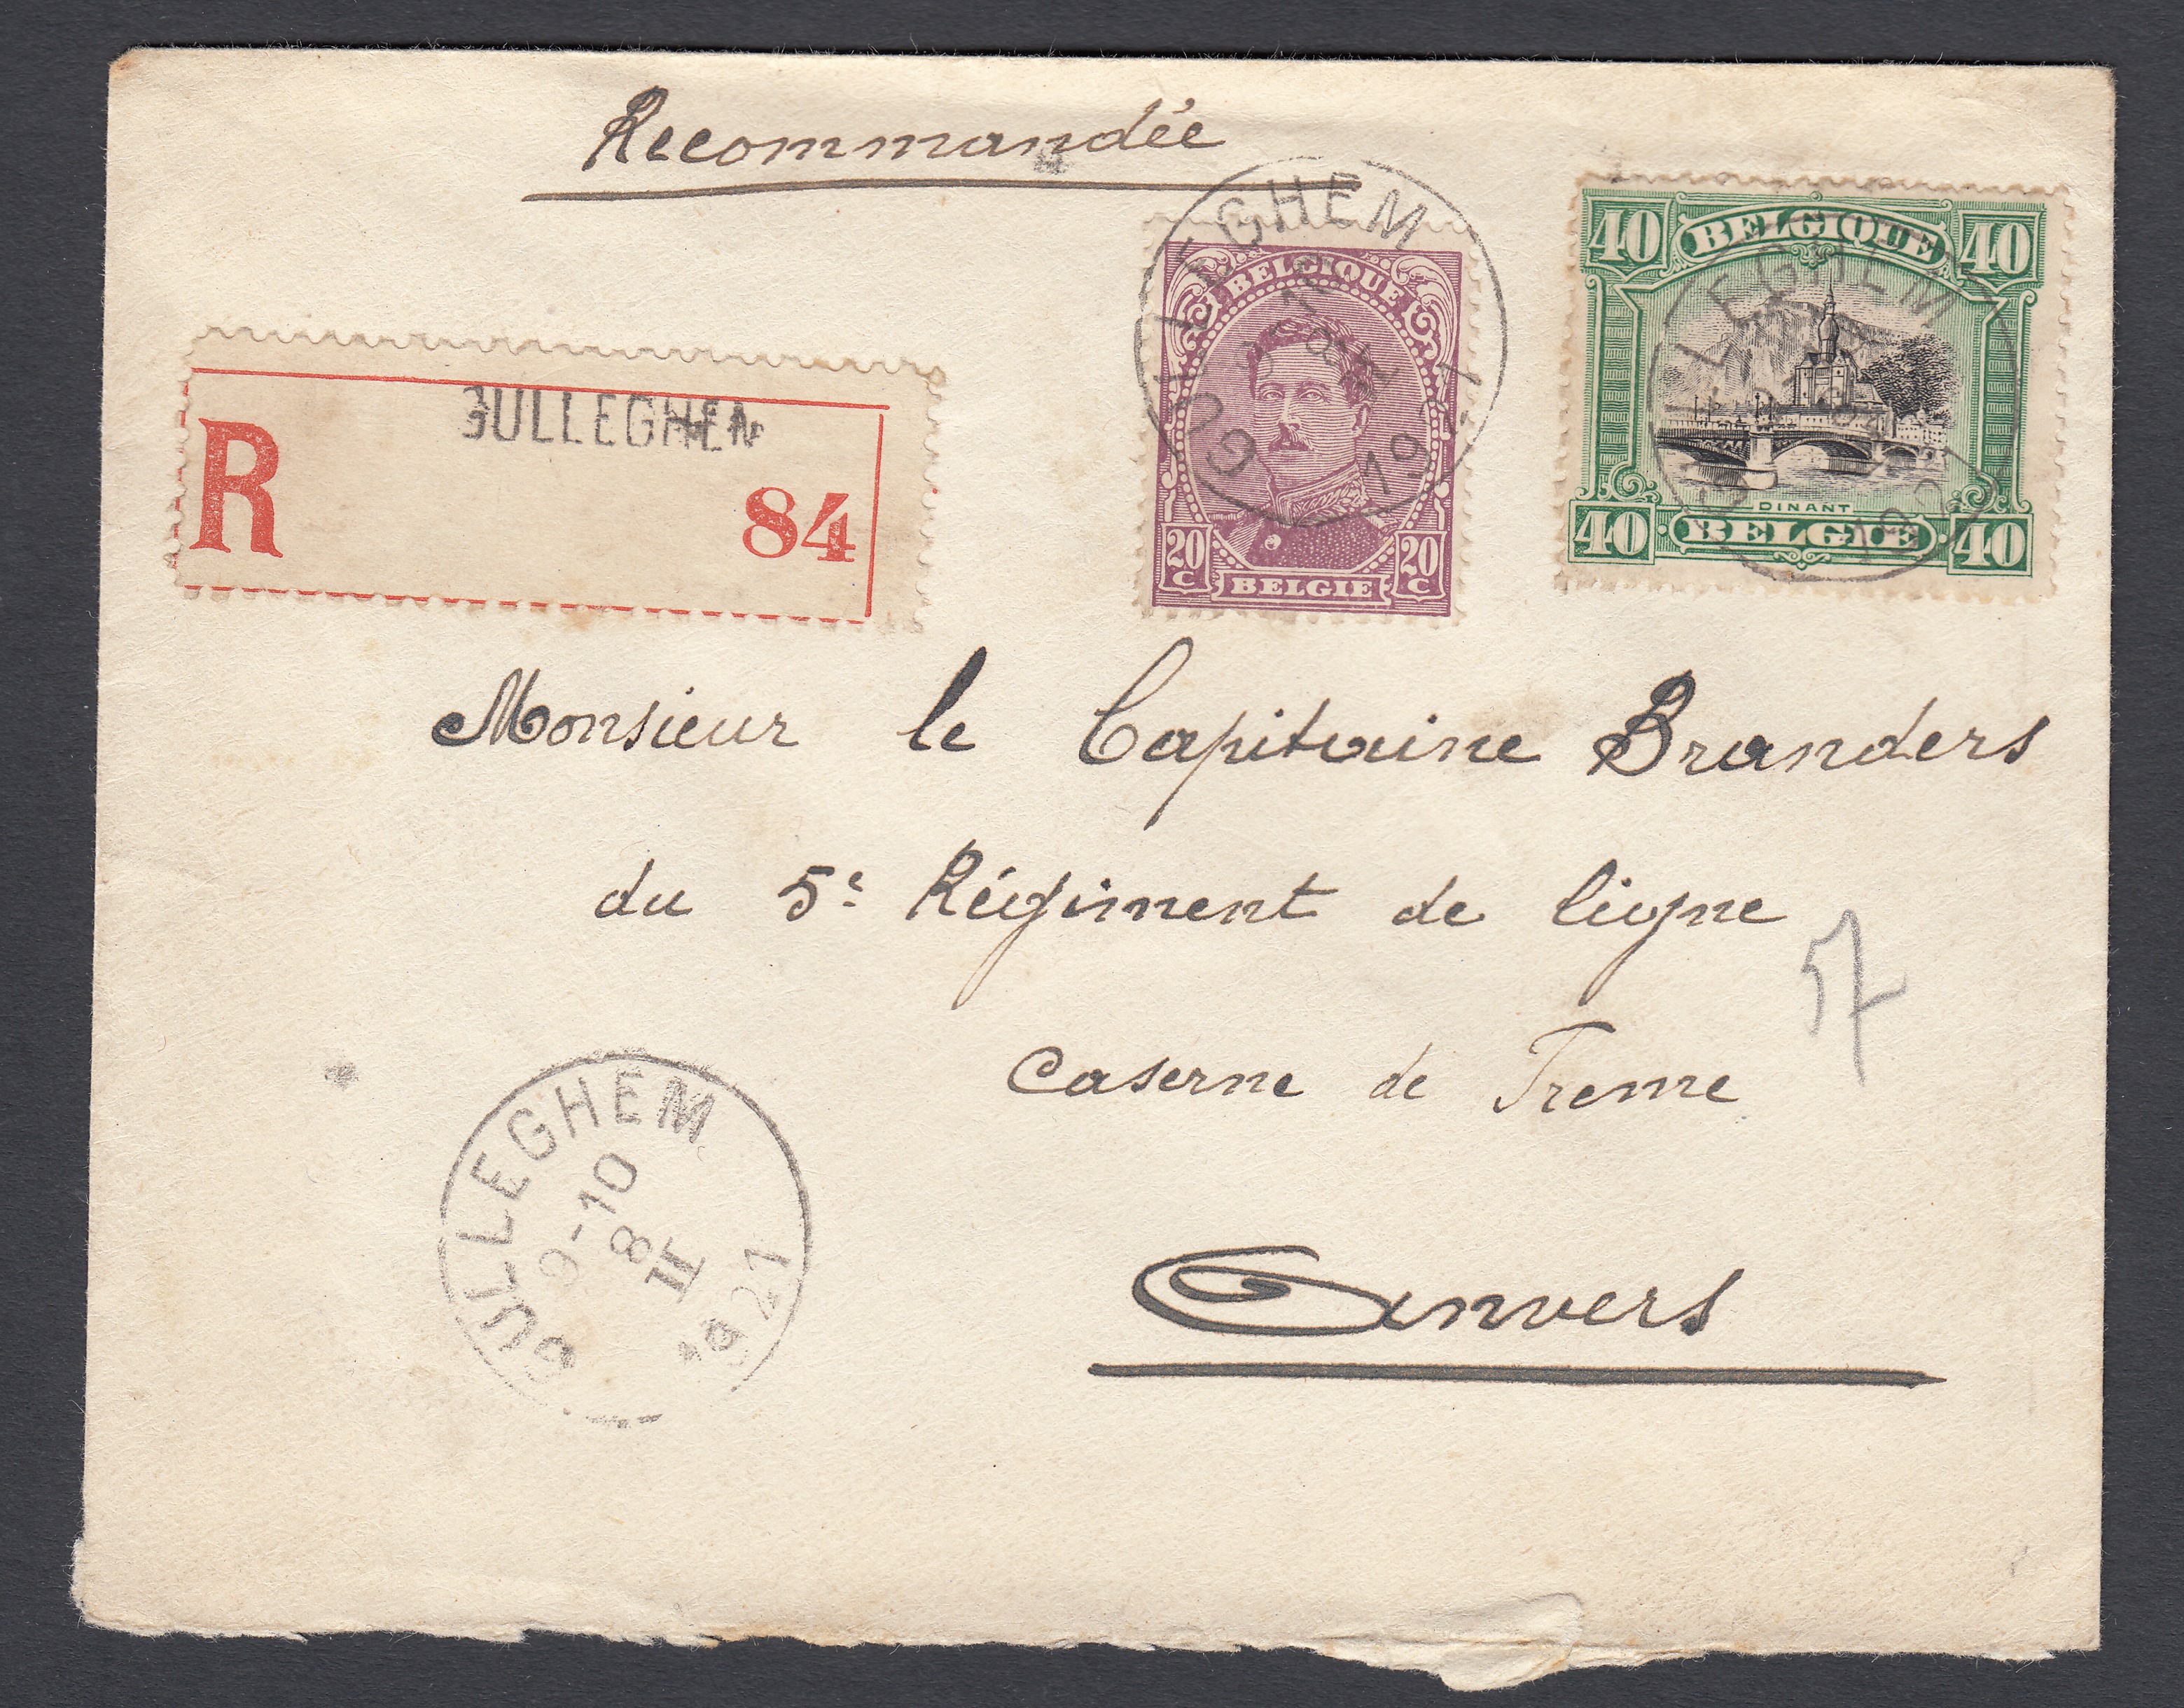 Recommandée
GULLEGHEM
R
84
GULLEGHEM
BELGIQUE
20 C 20 C
BELGIE
40 BELGIQUE 40
GULLEGHEM
DINANT
40 BELGIE 40
Monsieur le Capitaine Branders
du 5e Régiment de ligne
57
Caserne de Treme
GULLEGHEM
9-10
8
II
1921
Anvers